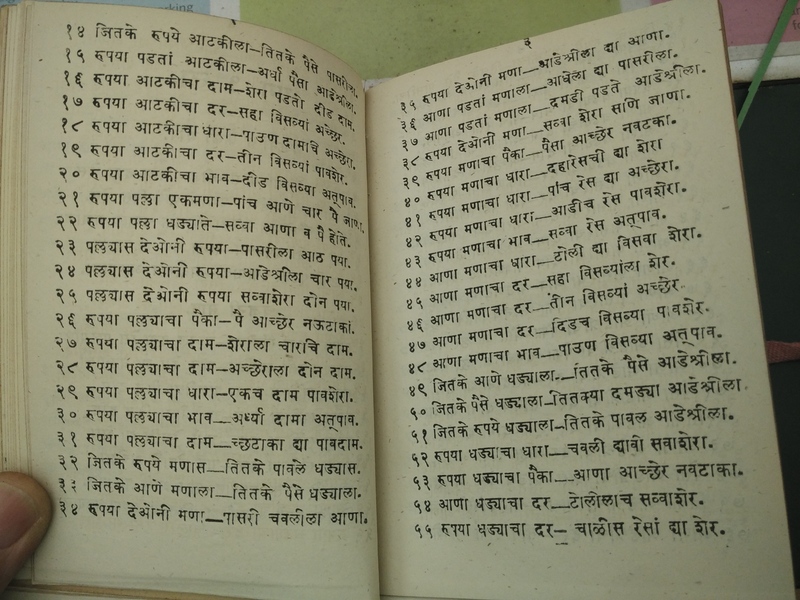 १४ जितके रुपये आटकीला—तितके पैसे पासरीला.
१५ रुपया पडतां आटकीला—अर्धा पैसा आडेश्रीला.
१६ रुपया आटकीचा दाम—शेरा पडतो दीड दाम.
१७ रुपया आटकीचा दर—सहा विसव्यां अच्छेर.
१८ रुपया आटकीचा धारा—पाउण दामाचि अच्छेरा.
१९ रुपया आटकीचा दर—तीन विसव्यां पावशेर.
२० रुपया आटकीचा भाव—दीड विसव्या अत्पाव.
२१ रुपया पल्ला एकमणा—पांच आणे चार पै जाणा.
२२ रुपया पल्ला धड्याते—सव्वा आणा व पै होते.
२३ पल्यास देओनी रुपया—पासरीला आठ पया.
२४ पल्यास देओनी रुपया—आडेश्रीला चार पया.
२५ पल्यास देओनी रुपया सव्वाशेरा दोन पया.
२६ रुपया पल्याचा पैका—पै आच्छेर नऊटाकां.
२७ रुपया पल्याचा दाम—शेराला चारचि दाम.
२८ रुपया पल्याचा दाम—अच्छेराला दोन दाम.
२९ रुपया पल्याचा धारा—एकच दाम पावशेरा.
३० रुपया पल्याचा भाव—अर्ध्या दामा अत्पाव.
३१ रुपया पल्याचा दाम—च्छटाका द्या पावदाम.
३२ जितके रुपये मणास—तितके पावले धड्यास.
३३ जितके आणे मणाला—तितके पैसे धड्याला.
३४ रुपया देओनी मणा—पासरी चवलीला आणा.
३
३५ रुपया देओनी मणा—आडेश्रीला द्या आणा.
३६ आणा पडतां मणाला—आधेला द्या पासरीला.
३७ आणा पडतां मणाला—दमडी पडते आडेश्रीला.
३८ रुपया देओनी मणा—सव्वा शेरा सांगि जाणा.
३९ रुपया मणाचा पैका—पैसा आच्छेर नवटका.
४० रुपया मणाचा धारा—दहारेसची द्या शेरा
४१ रुपया मणाचा धारा—पांच रेस द्या अच्छेरा.
४२ रुपया मणाचा धारा—आडीच रेस पावशेरा.
४३ रुपया मणाचा भाव—सव्वा रेस अत्पाव.
४४ आणा मणाचा धारा—टोली द्या विसवा शेरा.
४५ आणा मणाचा दर—सहा विसव्यांला शेर.
४६ आणा मणाचा दर—तीन विसव्यां अच्छेर.
४७ आणा मणाचा दर—दिडच विसव्या पावशेर.
४८ आणा मणाचा भाव—पाउण विसव्या अत्पाव.
४९ जितके आणे धड्याला—तितके पैसे आडेश्रीला.
५० जितके पैसे धड्याला—तितक्या दमड्या आडेश्रीला.
५१ जितके रुपये धड्याला—तितके पावल आडेश्रीला.
५२ रुपया धड्याचा धारा—चवली द्यावी सवाशेरा.
५३ रुपया धड्याचा पैका—आणा आच्छेर नवटाका.
५४ आणा धड्याचा दर—टोलीलाच सव्वाशेर.
५५ रुपया धड्याचा दर—चाळीस रेसां द्या शेर.